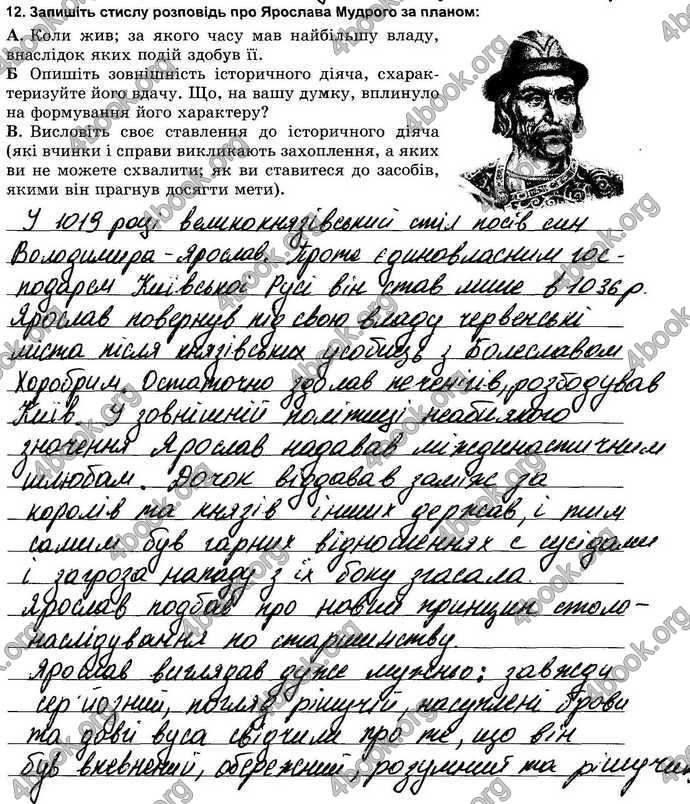 12. Запишіть стислу розповідь про Ярослава Мудрого за планом:
А. Коли жив; за якого часу мав найбільшу владу,
внаслідок яких подій здобув її.
Б Опишіть зовнішність історичного діяча, схарак-
теризуйте його вдачу. Що, на вашу думку, вплинуло
на формування його характеру?
В. Висловіть своє ставлення до історичного діяча
(які вчинки і справи викликають захоплення, а яких
ви не можете схвалити; як ви ставитеся до засобів,
якими він прагнув досягти мети).
У 1019 році великокнязівський стіл посів син
Володимира - Ярослав. Проте єдиновласним гос-
подарем Київської Русі він став лише в 1036 р.
Ярослав повернув під свою владу червенські
міста після князівських усобиць з Болеславом
Хоробрим. Остаточно здолав печенігів, розбодував
Київ. У зовнішній політиці неабиякого
значення Ярослав надавав міждинастичним
шлюбам. Дочок віддавав заміж за
королів та князів інших держав, і тим
самим був гарних відношеннях с сусідами
і загроза нападу з їх боку згасала.
Ярослав подбав про новий принцип столо-
наслідування по старшинству.
Ярослав виглядав дуже мужньо: завжди
серйозний, погляд рішучій, насуплені брови
та довгі вуса свідчили про те, що він
був впевнений, обережний, розумний та рішучий
4book.org